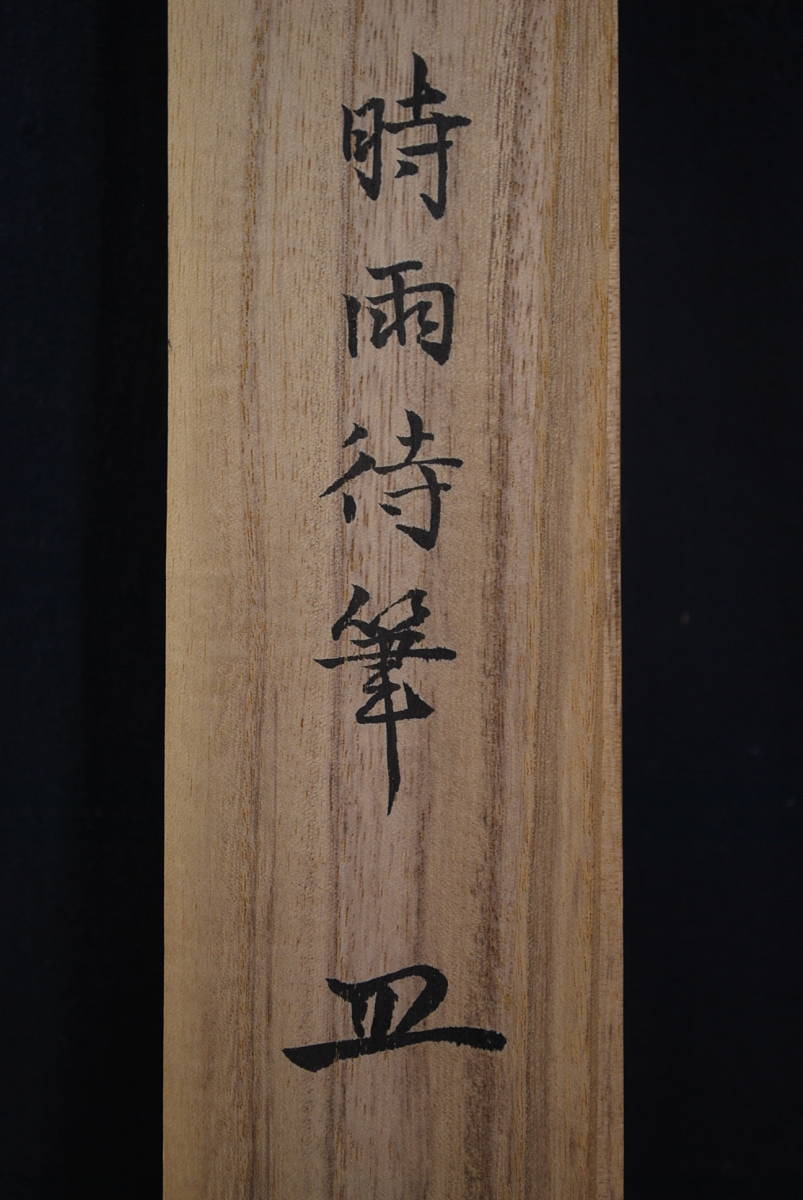 時雨待筆 皿